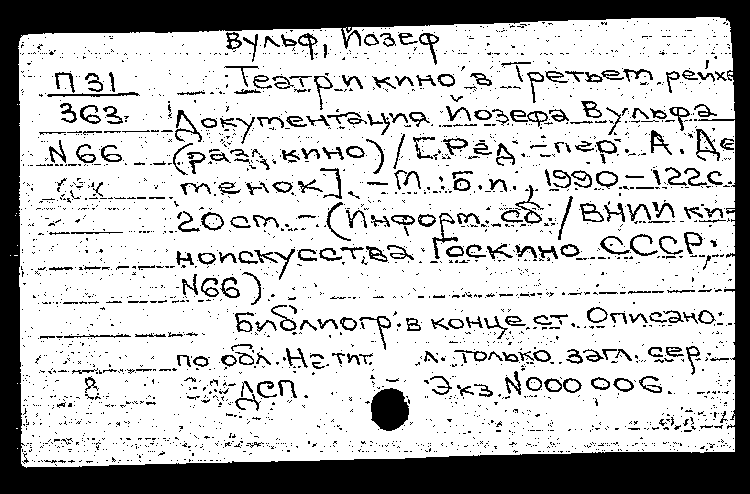 Вульф, Йозеф
П 31 Театр и кино в Третьем рейхе
363 Документация Йозефа Вульфа
N 66 (разд. кино) / [Ред.-пер. А. Де
тенок]. – М.: Б.и., 1990 – 122с.
20 cm. – (Информ. сб. / ВНИИ ки-
ноискусства Госкино СССР;
N66).
Библиогр. в конце ст. Описано
по обл. На тит. л. только загл. сер.
8 ДСП. Экз. N000 006.